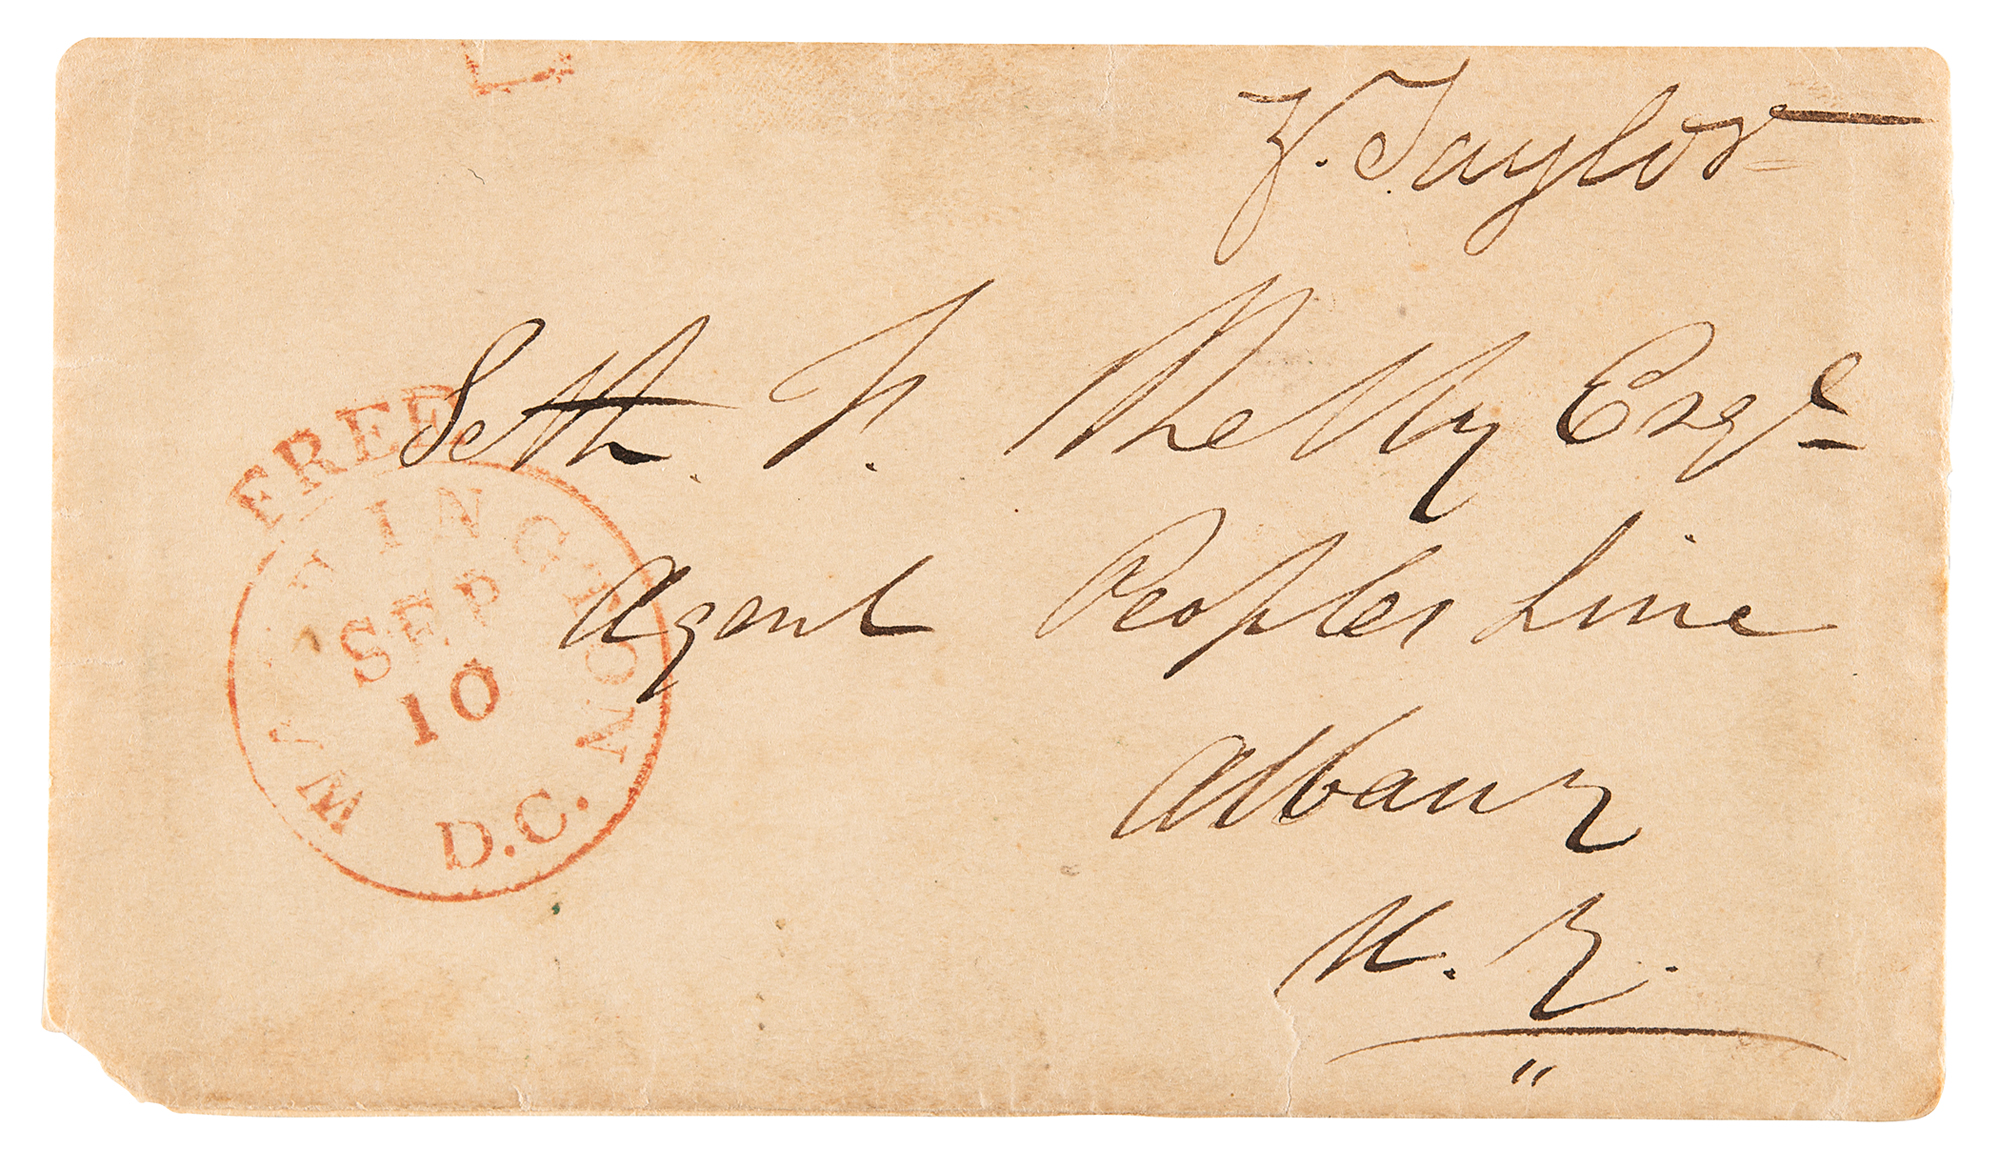 Z. Taylor
Seth
Esqr
Agent Peoples Line
Albany
N. Y.
FREE
WASHINGTON
SEP
10
D.C.